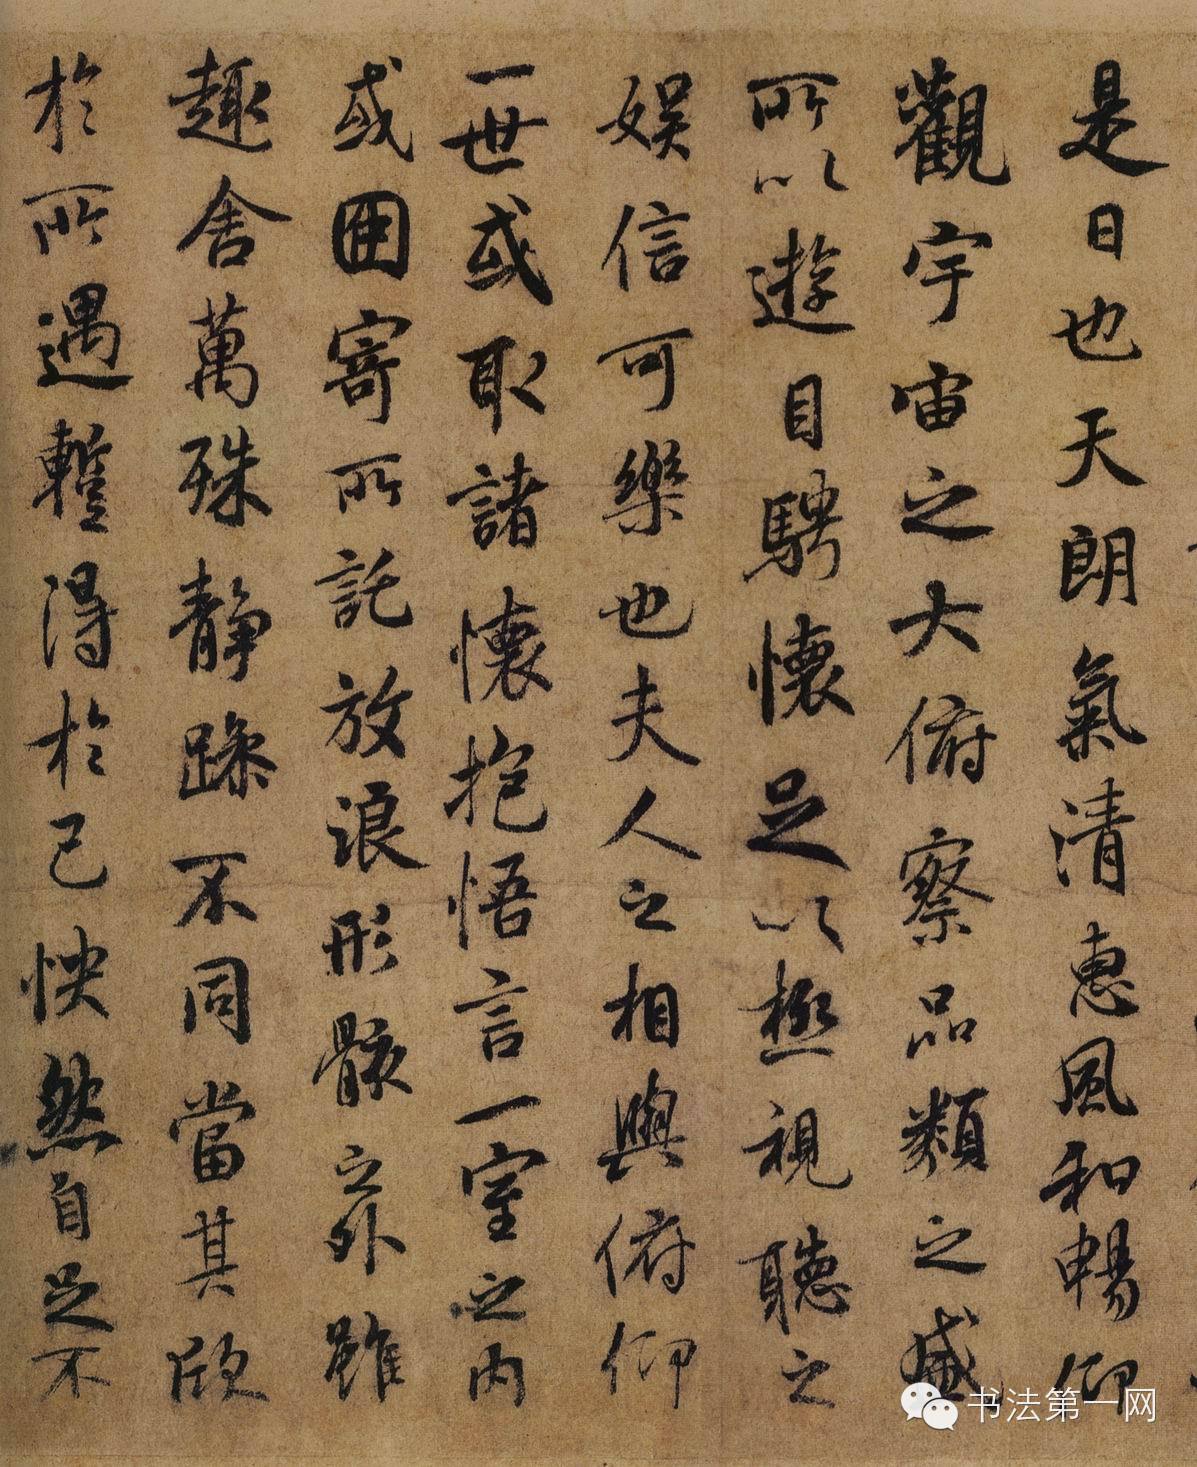 是日也天朗氣清惠風和暢仰
觀宇宙之大俯察品類之盛
所以遊目騁懷足以極視聽之
娛信可樂也夫人之相與俯仰
一世或取諸懷抱悟言一室之內
或因寄所託放浪形骸之外雖
趣舍萬殊靜躁不同當其欣
於所遇蹔得於己怏然自足不
书法第一网